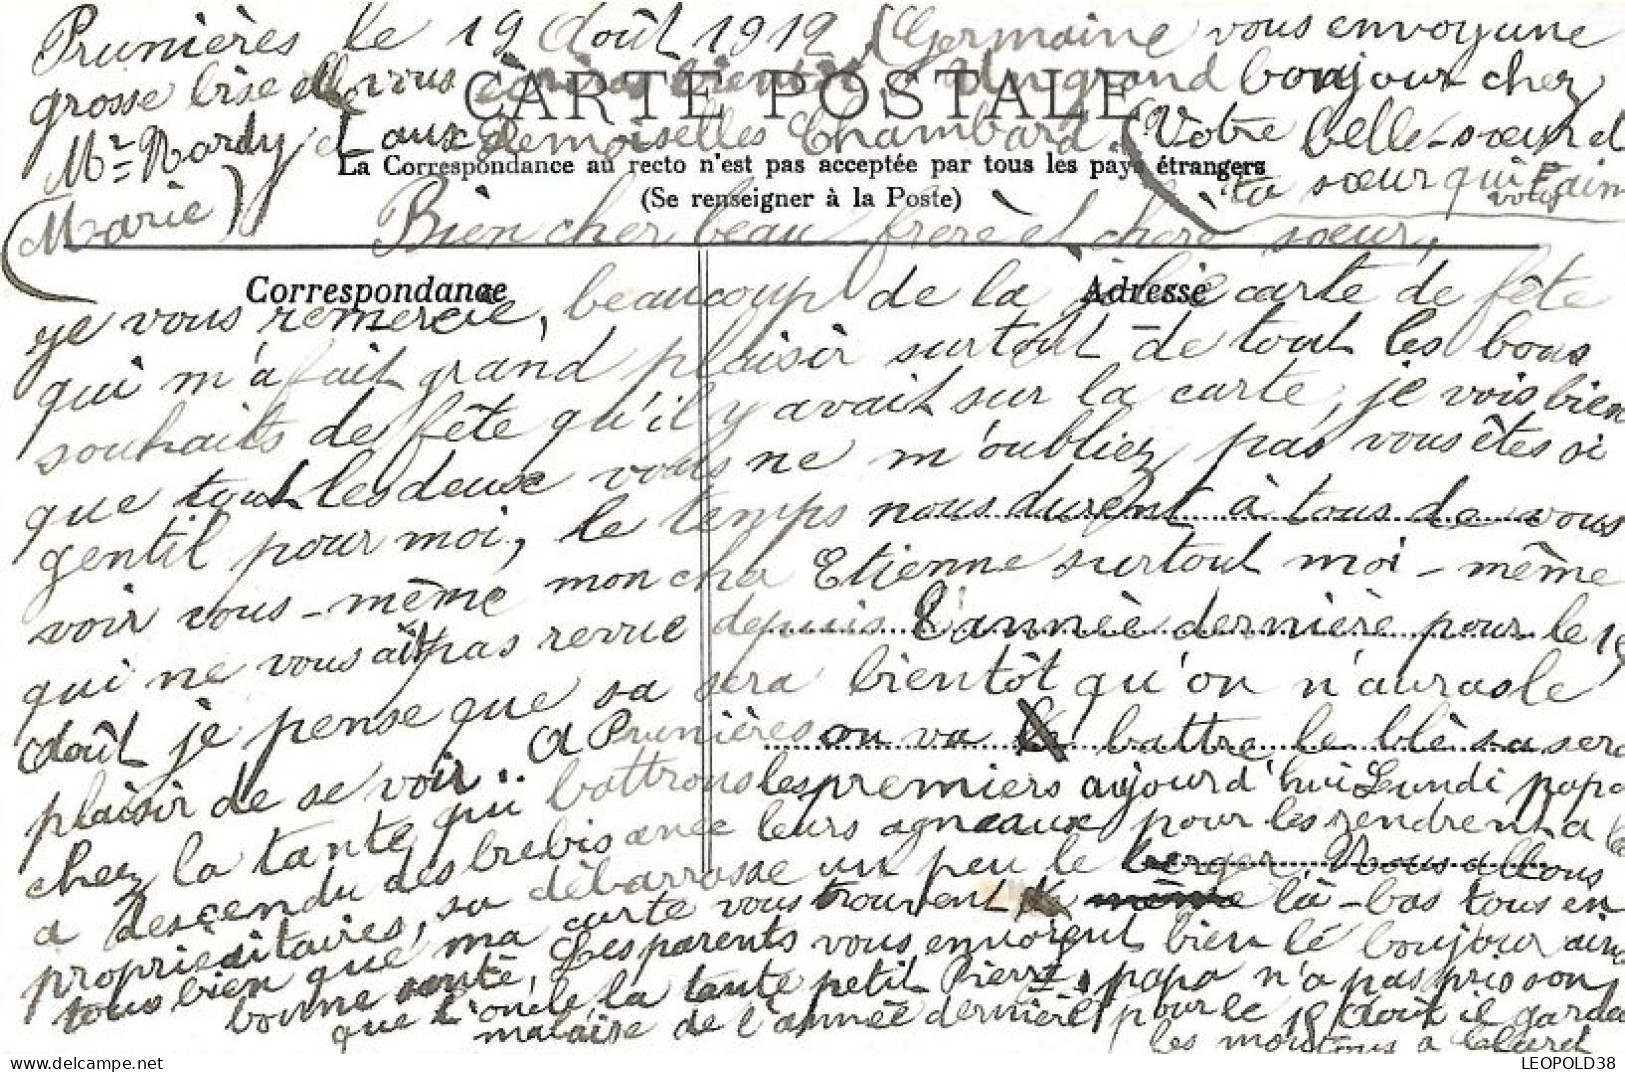 Prunières le 19 Août 1912 (Germaine vous envoyune
grosse bise elle vous bientôt. Un grand bonjour chez
CARTE POSTALE
Mr= Nardy et aux demoiselles Chambard. (Votre belle-sœur et
La Correspondance au recto n'est pas acceptée par tous les pays étrangers
ta sœur qui vous aim
(Se renseigner à la Poste)
Marie)
Bièn cher beau frère et chère sœur,
Correspondance
Adresse
je vous remercie, beaucoup de la jolie carte de fête
qui m'a fait grand plaisir surtout de tout les bons
souhaits de fête qu'il y avait sur la carte, je vois bien
que tout les deux vous ne m'oubliez pas vous êtes si
gentil pour moi, le temps nous durent à tous de vous
voir vous-même mon cher Etienne surtout moi-même
qui ne vous ait pas revue depuis l'année dernière pour le 15
doût je pense que sa sera bientôt qu'on n'aurasle
plaisir de se voir.. A Prunières on va battre le blè sa sera
chez la tante qui battrons lespremiers aujourd'hui Lundi papa
a descendu des brebis avec leurs agneaux pour les rendrent a
proprieaitaires, sa dèbarrasse un peu le berger. Nous allons
tous bien que ma carte vous trouvent là-bas tous en
bonne santé, Les parents vous envoient bien lé boujour ainsi
que l'oncle la tante petit Pierre, papa n'a pas pris son
malaise de l'année dernière pour le 15 doût il garde
les moutons a
LEOPOLD38